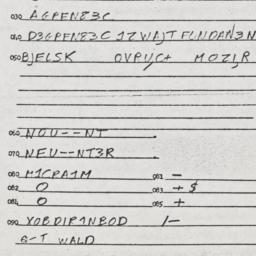 030 AGPFNE3C
040 D3GPFNE3C 1ZWAJT FLNDAN3N
050 BJELSK OVPUC+ MOZIR
060 NOU--NT
070 NFU--NT3R
080 M1CPA1M 081 -
082 O 083 + $
084 O 085 +
090 XOBDIP1NBOD /-
G-T WALD